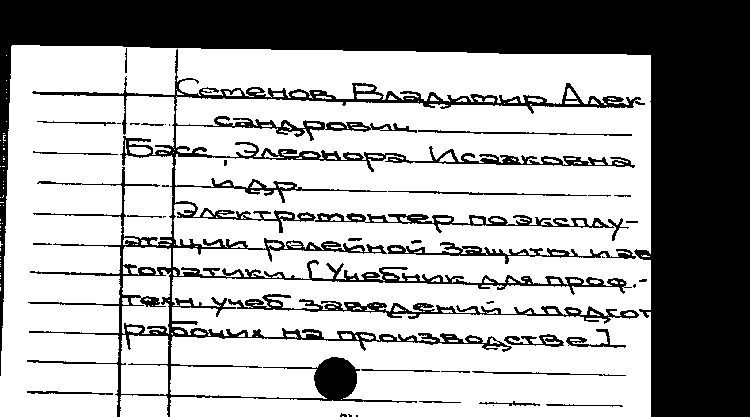 Семенов, Владимир Алек
сандрович
Басс, Элеонора Исааковна
и др.
Электромонтер по эксплу-
атации релейной защиты и ав
томатики. [Учебник для проф.-
техн. учеб заведений и подгот
рабочих на производстве]